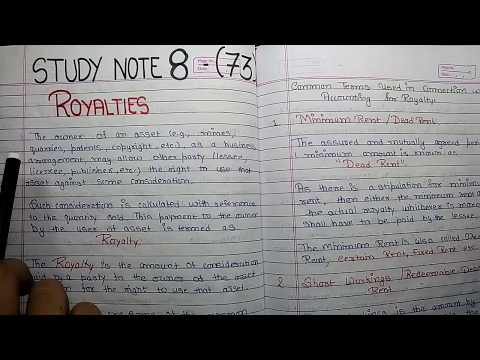 STUDY NOTE 8 - (73)
ROYALTIES
The owner of an asset (e.g., mines,
quarries, patents, copyright, etc.), as a business
arrangement, may allow other party (lessee,
licencee, publisher, etc.) the right to use that
asset against some consideration.
Such consideration is calculated with reference
to the quantity sold. This payment to the owner
by the user of asset is termed as
Royalty.
The Royalty is the amount of consideration
paid by a party to the owner of the asset
for the right to use that asset.
Common Terms Used in Connection
Accounting for Royalty:
1. Minimum Rent / Dead Rent
The assured and mutually agreed
minimum amount is known as
"Dead Rent".
As there is a stipulation for minimum
rent, then either the minimum rent
the actual royalty whichever is
shall have to be paid by the lessee.
The Minimum Rent is also called
Rent, Certain Rent, Fixed Rent etc.
2. Short Workings / Redeemable Dead
Rent
workings is the amount by